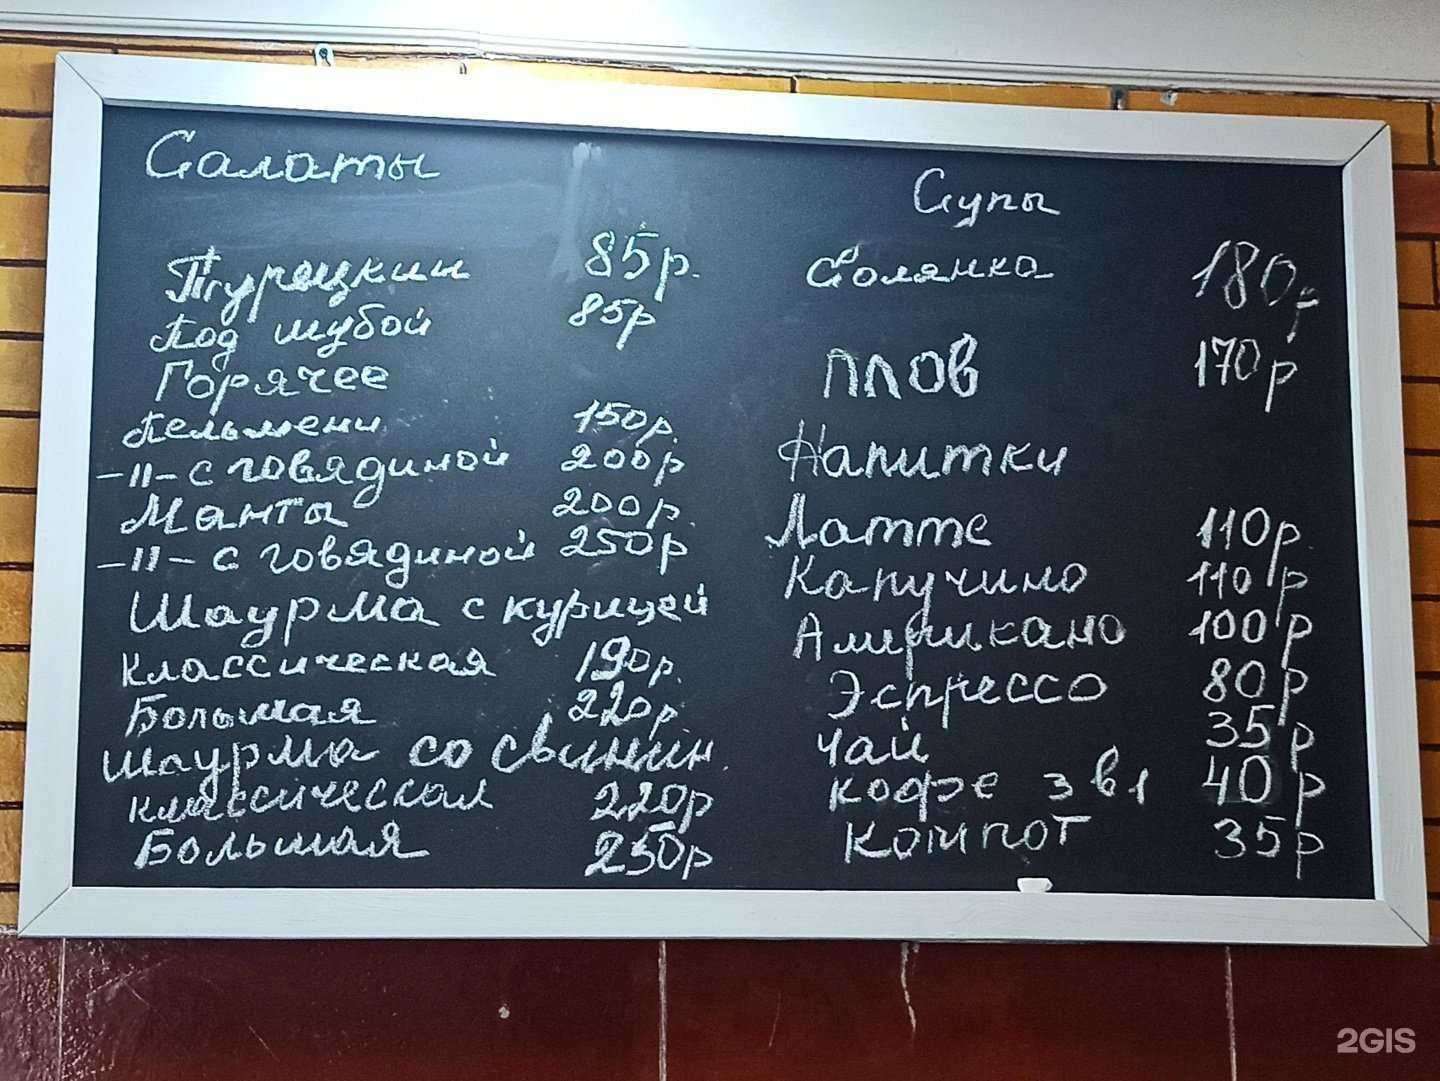 Салаты
Турецкий 85р.
Под шубой 85р
Горячее
Пельмени 150р.
-11- с говядиной 200р
Манты 200р.
-11- с говядиной 250р
Шаурма с курицей
классическая 190р.
Большая 220р.
Шаурма со свинин.
классическая 220р
Большая 250р
Супы
Солянка 180р
плов 170р
Напитки
Латте 110р
Капучино 110р
Американо 100р
Эспрессо 80р
чай 35р
кофе 3 в 1 40р
компот 35р
2GIS